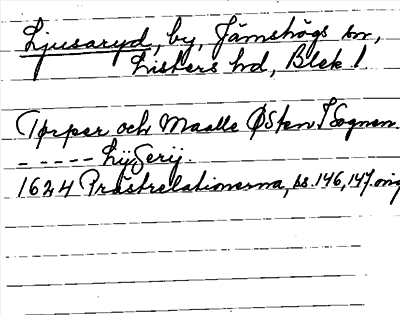 Ljusaryd, by, Jämshögs sn,
Listers hd, Blek l.
Tørper och Maalle Østen I Sognen.
- - - - - Lÿserÿ.
1624 Prästrelationerna, ss. 146, 147. orig